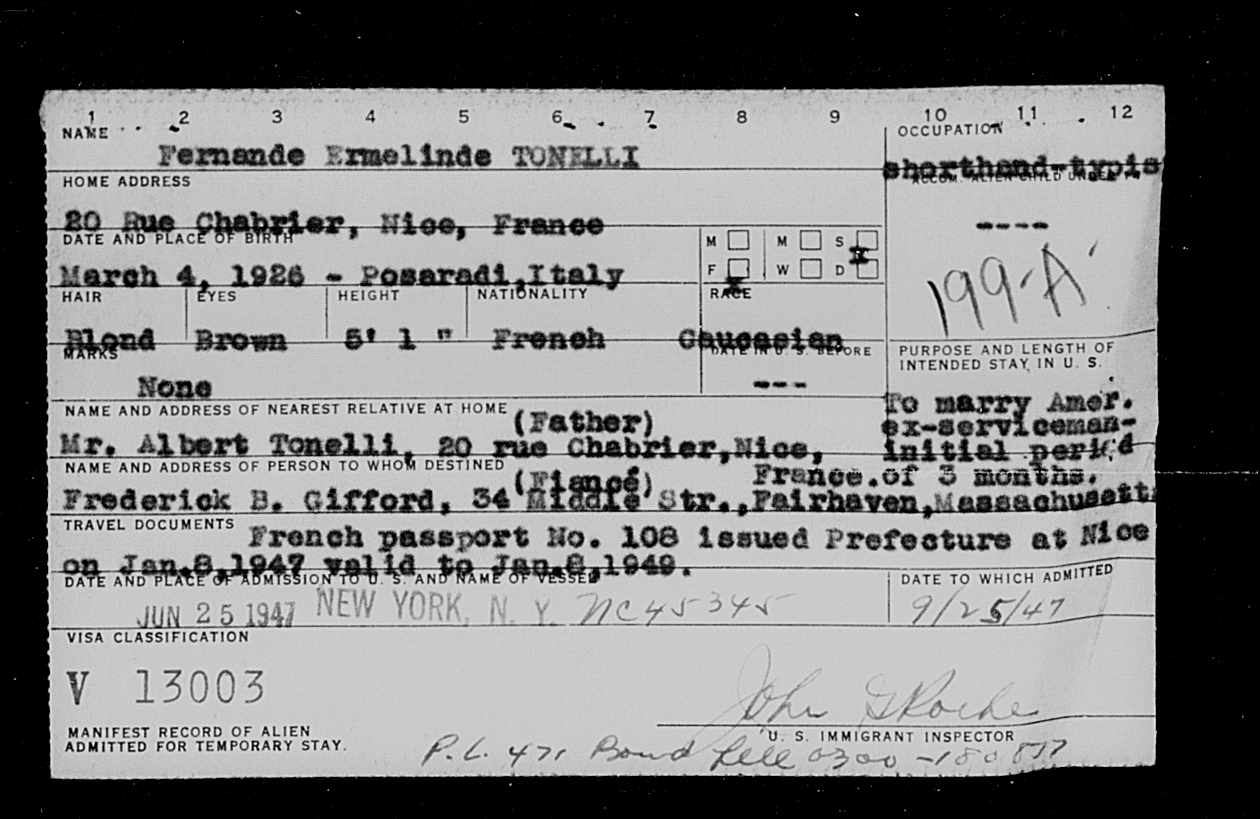 1 2 3 4 5 6 7 8 9 10 11 12
NAME
Fernande Ermelinde TONELLI
OCCUPATION
shorthand-typis
HOME ADDRESS
ACCOM. ALIEN CHILD UNDER
20 Rue Chabrier, Nice, France
----
DATE AND PLACE OF BIRTH
M M S
March 4, 1926 - Posaradi,Italy
F W D
x x
199-A
HAIR EYES HEIGHT NATIONALITY RACE
Blond Brown 5' 1 " French Caucasian
MARKS DATE IN U. S. BEFORE
None
---
PURPOSE AND LENGTH OF
INTENDED STAY IN U. S.
To marry Amer.
ex-serviceman-
initial period
of 3 months.
NAME AND ADDRESS OF NEAREST RELATIVE AT HOME
(Father)
Mr. Albert Tonelli, 20 rue Chabrier,Nice,
France.
NAME AND ADDRESS OF PERSON TO WHOM DESTINED
(Fiancé)
Frederick B. Gifford, 34 Middle Str.,Fairhaven,Massachusetts
TRAVEL DOCUMENTS
French passport No. 108 issued Prefecture at Nice
on Jan.8,1947 valid to Jan.8,1949.
DATE AND PLACE OF ADMISSION TO U. S. AND NAME OF VESSEL
DATE TO WHICH ADMITTED
JUN 25 1947 NEW YORK, N. Y. NC45345
9/25/47
VISA CLASSIFICATION
V 13003
John G Roche
U. S. IMMIGRANT INSPECTOR
MANIFEST RECORD OF ALIEN
ADMITTED FOR TEMPORARY STAY.
P.L. 471 Bond File 0300-